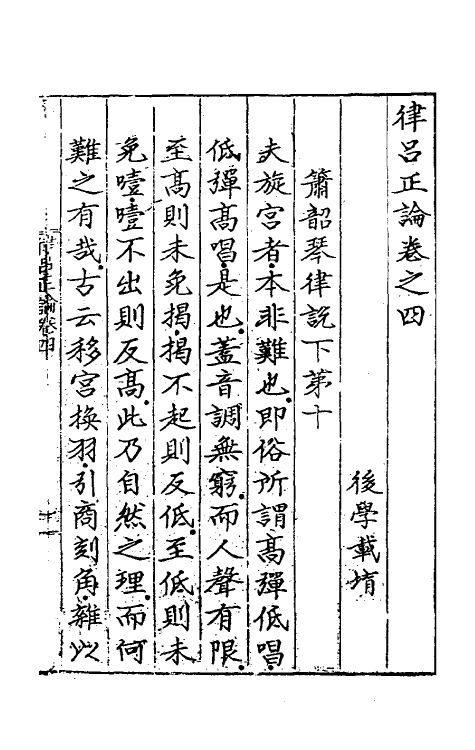 律呂正論卷之四
後學載堉
簫韶琴律說下第十
夫旋宮者本非難也即俗所謂高彈低唱
低彈高唱是也蓋音調無窮而人聲有限
至高則未免揭揭不起則反低至低則未
免噎噎不出則反高此乃自然之理而何
難之有哉古云移宮換羽引商刻角雜以